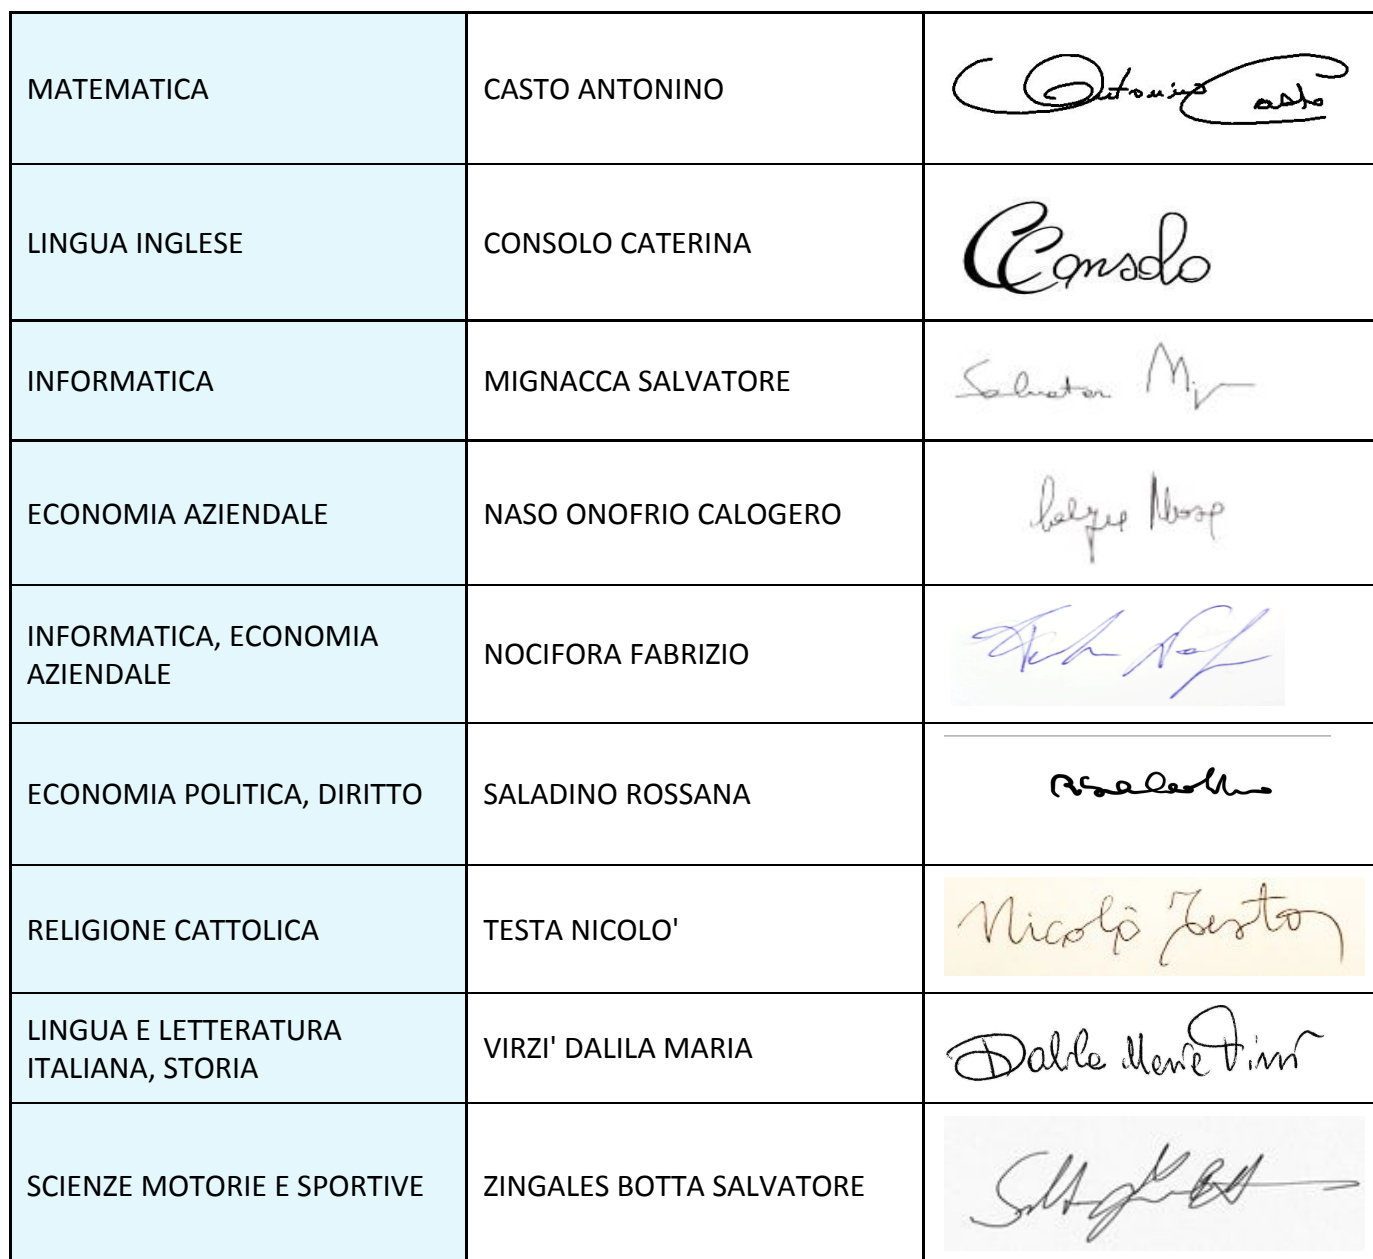 MATEMATICA CASTO ANTONINO Antonino Casto
LINGUA INGLESE CONSOLO CATERINA CConsolo
INFORMATICA MIGNACCA SALVATORE Salvator
ECONOMIA AZIENDALE NASO ONOFRIO CALOGERO
INFORMATICA, ECONOMIA
AZIENDALE NOCIFORA FABRIZIO
ECONOMIA POLITICA, DIRITTO SALADINO ROSSANA
RELIGIONE CATTOLICA TESTA NICOLO' Nicolò Testa
LINGUA E LETTERATURA
ITALIANA, STORIA VIRZI' DALILA MARIA Dalila Maria Virzì
SCIENZE MOTORIE E SPORTIVE ZINGALES BOTTA SALVATORE